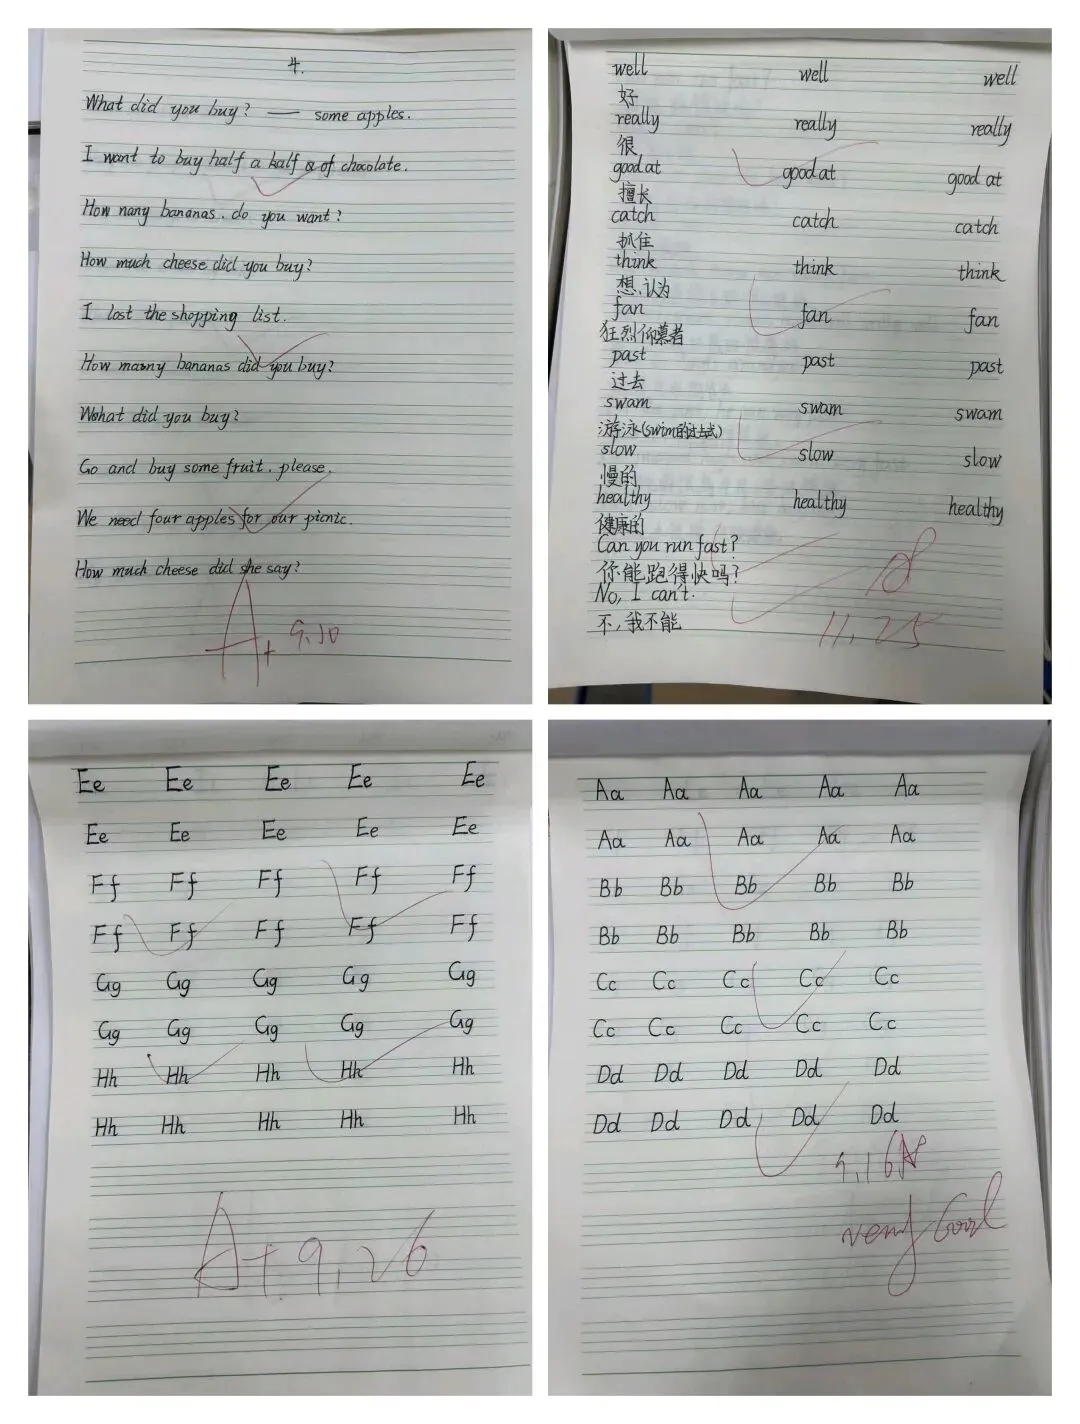 4.
What did you buy? — some apples.
I want to buy half a half a of chocolate.
How nany bananas. do you want?
How much cheese did you buy?
I lost the shopping list.
How many bananas did you buy?
What did you buy?
Go and buy some fruit. please.
We need four apples for our picnic.
How much cheese did she say?
A+ 9.10
well well well
好
really really really
很
good at good at good at
擅长
catch catch catch
抓住
think think think
想,认为
fan fan fan
狂烈仰慕者
past past past
过去
swam swam swam
游泳(swim的过去式)
slow slow slow
慢的
healthy healthy healthy
健康的
Can you run fast?
你能跑得快吗?
No, I can't.
不,我不能
11.25
Ee Ee Ee Ee Ee
Ee Ee Ee Ee Ee
Ff Ff Ff Ff Ff
Ff Ff Ff Ff Ff
Gg Gg Gg Gg Gg
Gg Gg Gg Gg Gg
Hh Hh Hh Hh Hh
Hh Hh Hh Hh Hh
A+ 9.26
Aa Aa Aa Aa Aa
Aa Aa Aa Aa Aa
Bb Bb Bb Bb Bb
Bb Bb Bb Bb Bb
Cc Cc Cc Cc Cc
Cc Cc Cc Cc Cc
Dd Dd Dd Dd Dd
Dd Dd Dd Dd Dd
9.16
very Good